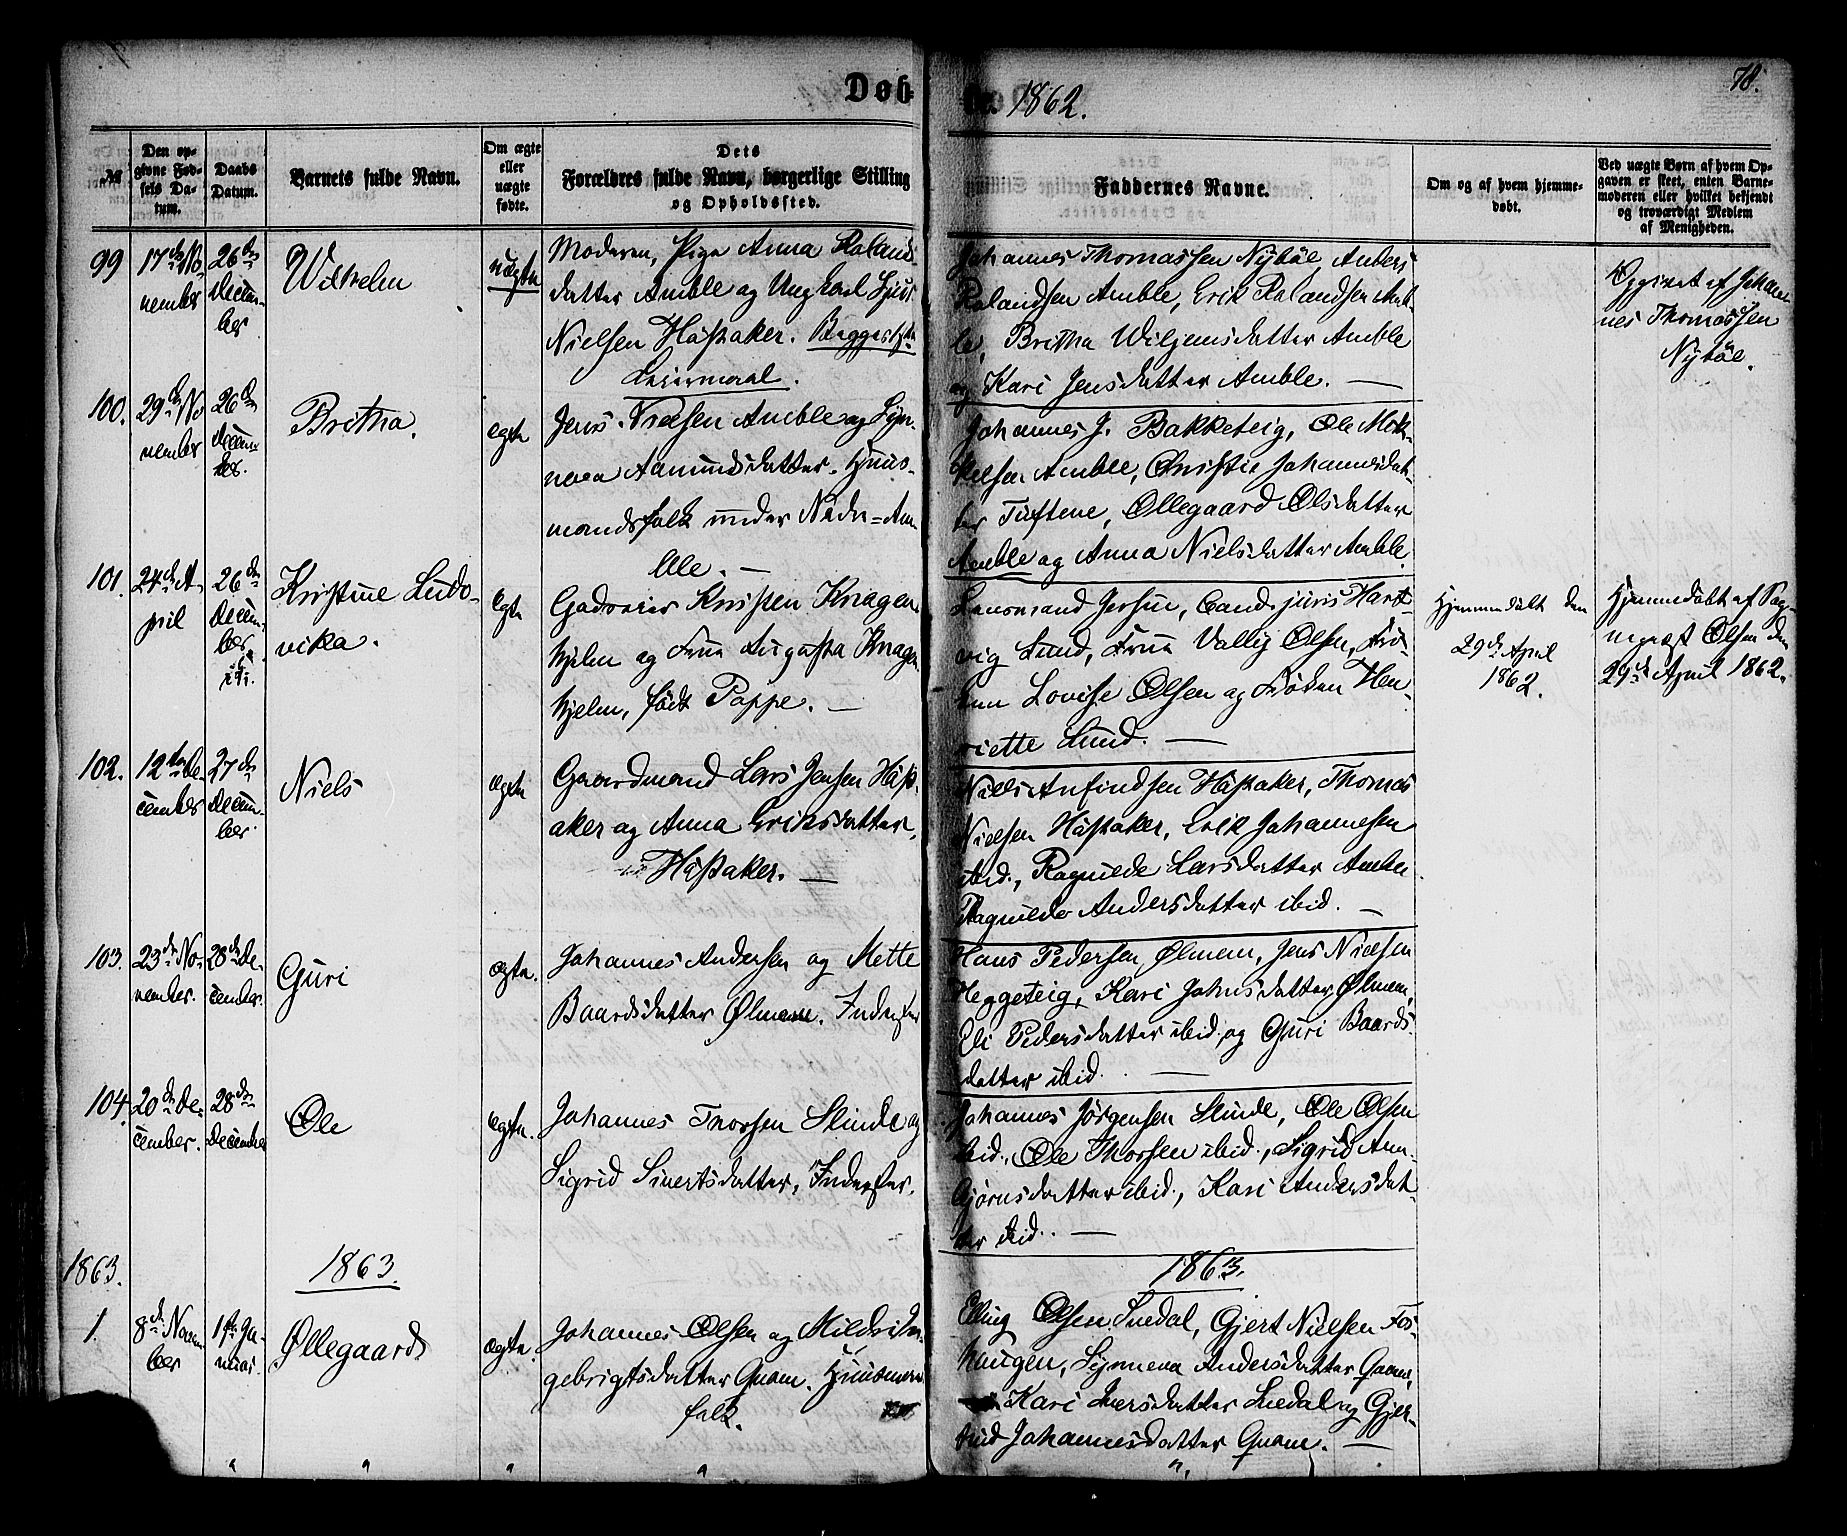 Døb-
te. 1862.
78.
№
Den op-
givne Fød-
sels Da-
tum.
Daabs
Datum.
Barnets fulde Navn.
Om ægte
eller
uægte
fødte.
Dets
Forældres fulde Navn, borgerlige Stilling
og Opholdssted.
Faddernes Navne.
Om og af hvem hjemme-
døbt.
Ved uægte Børn af hvem Op-
gaven er skeet, enten Barne-
moderen eller hvilket bekjendt
og troværdigt Medlem
af Menigheden.
99
17de No-
vember
26de
Decem-
ber
Wilhelm
uægte
Moderen, Pige Anna Rolands-
datter Amble og Ungkarl Sjur
Nielsen Håssaker. Begges 1ste
Leiermaal.
Johannes Thomassen Nybøe, Anders
Rolandsen Amble, Erik Rolandsen Am-
ble, Britha Wiljemsdatter Amble
og Kari Jensdatter Amble. —
Opgivet af Johan-
nes Thomassen
Nybøe.
100.
29de No-
vember
26de
Decem-
ber.
Britha.
egte
Jens Nielsen Amble og Syn-
neva Amundsdatter. Huus-
mandsfolk under Nedre=Am-
ble. —
Johannes J. Bakketeig, Ole Mik-
kelsen Amble, Christie Johannesdat-
ter Tuftene, Øllegaard Olsdatter
Amble og Anna Nielsdatter Amble.
101.
24de A-
pril
26de
Decem-
ber
Kristine Ludo-
vika.
egte
Gadvoier Knagen-
hjelm og Frue Augusta Knagen-
hjelm, født Poppe. —
Lensmand Jersin, Cand. juris Hart-
vig Lund, Frue Vally Olsen, Frø-
ken Lovise Olsen og Frøken Hen-
riette Lund. —
Hjemmedøbt den
29de April
1862.
Hjemmedøbt af Sog-
nepræst Olsen den
29de April 1862.
102.
12te De-
cember
27de
Decem-
ber.
Niels
ægte
Gaardmand Lars Jensen Håss-
aker og Anna Eriksdatter,
Håssaker. —
Niels Anfindsen Håssaker, Thomas
Nielsen Håssaker, Erik Johannesen
ibid., Ragnilde Larsdatter Amble
Ragnilde Andersdatter ibid. —
103.
23de No-
vember.
28de De-
cember.
Guri
ægte.
Johannes Andersen og Mette
Baardsdatter Ølmem. Inderster
Hans Pedersen Ølmem, Jens Nielsen
Heggeteig, Kari Johnsdatter Ølmem,
Eli Pedersdatter ibid. og Guri Baards-
datter ibid. —
104.
20de De-
cember.
28de
December
Ole
ægte.
Johannes Thorsen Slinde og
Sigrid Sivertsdatter, Inderster.
Johannes Jørgensen Slinde, Ole Olsen
ibid., Ole Thorsen ibid., Sigrid Arn-
bjørnsdatter ibid., Kari Andersdat-
ter ibid. —
1863.
1863.
1863.
1.
8de Novem-
ber
1ste Ja-
nuar.
Øllegaard
ægte.
Johannes Olsen og Mildri In-
gebrigtsdatter Qvam. Huusmands-
folk.
Elling Olsen Suedal, Gjert Nielsen Fos-
haugen, Synneva Andersdatter Qvam,
Kari Iversdatter Suedal og Gjer-
trud Johannesdatter Qvam. —